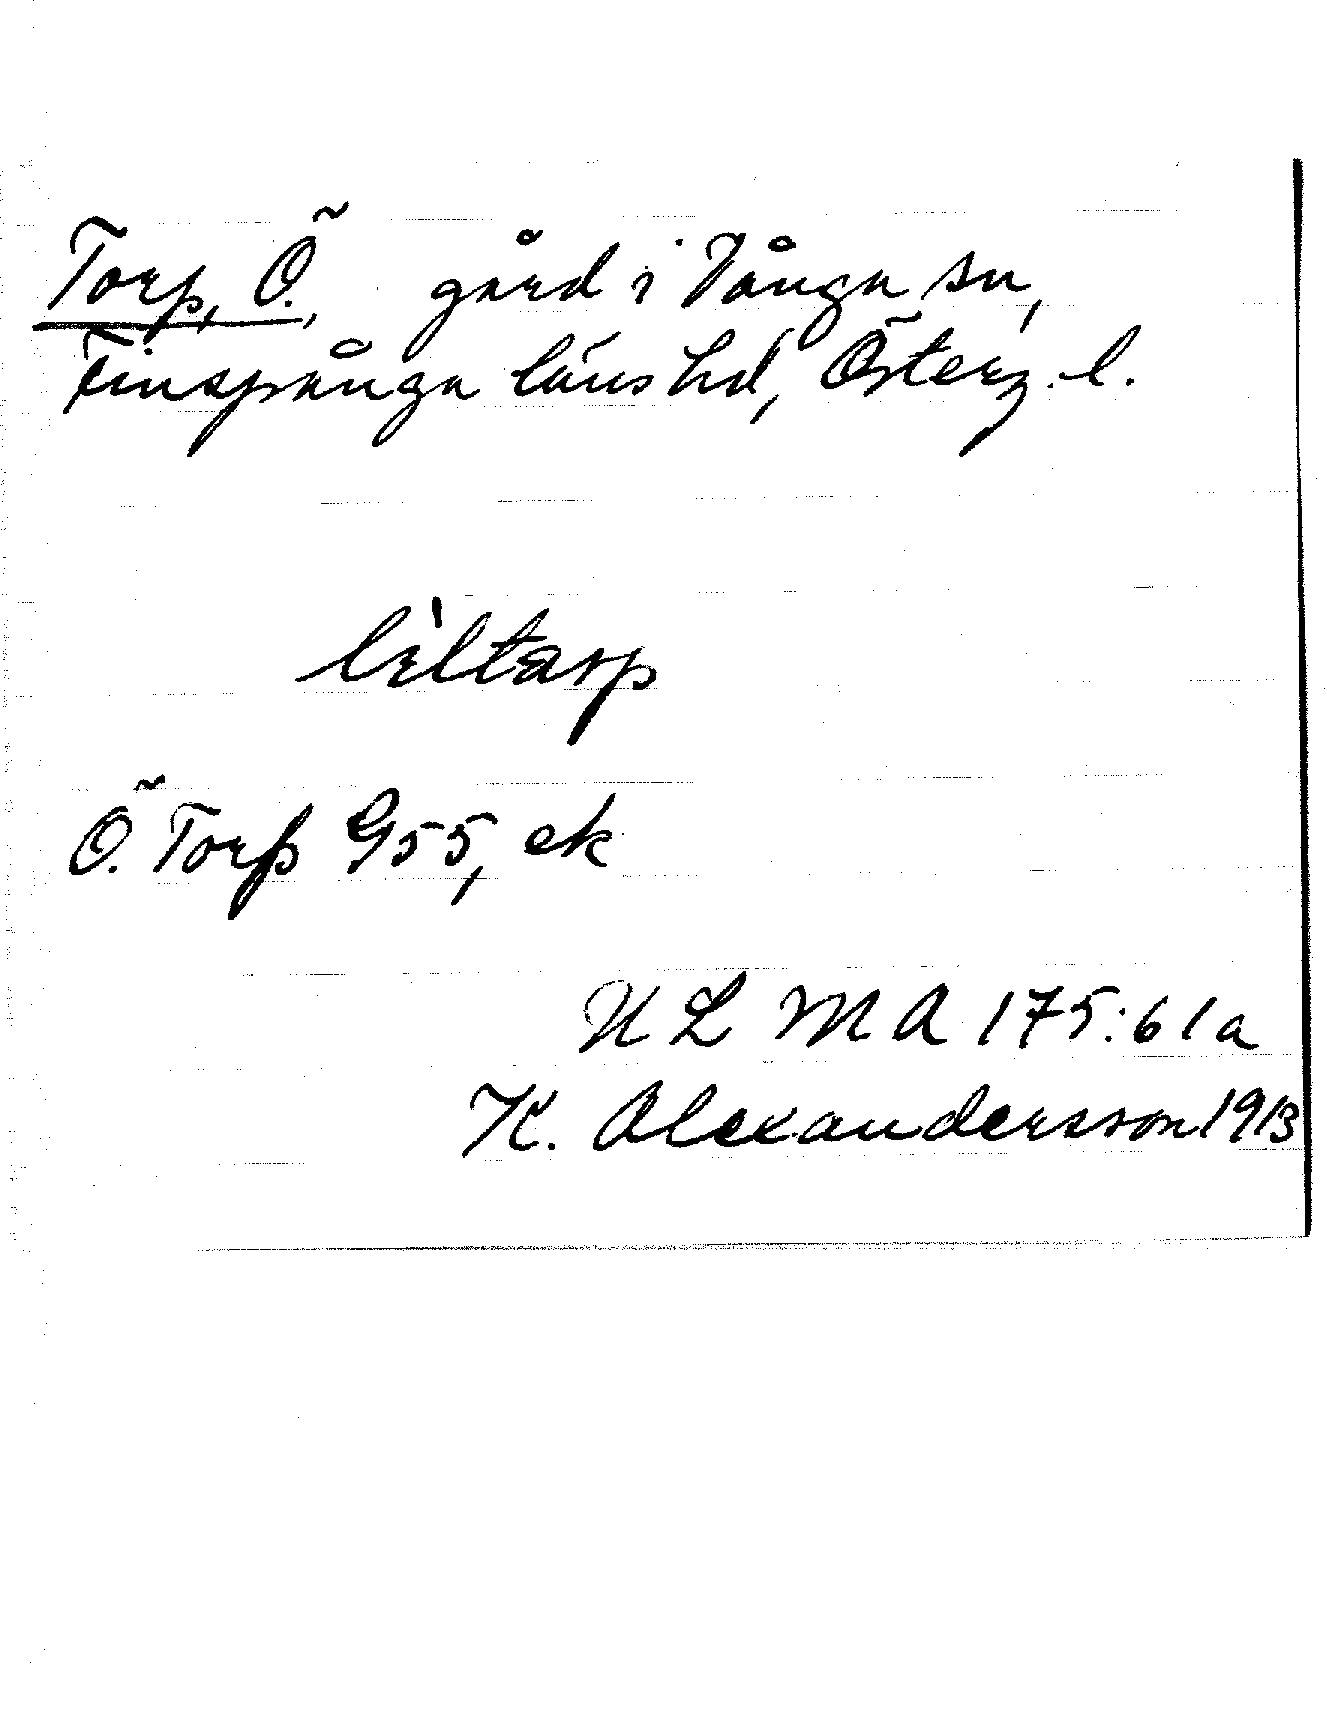 Torp, Ö., gård i Vånga sn,
Finspånga läns hd, Österg. l.
lìltarp
Ö. Torp G55, ek
ULMA 175:61a
K. Alexandersson 1913